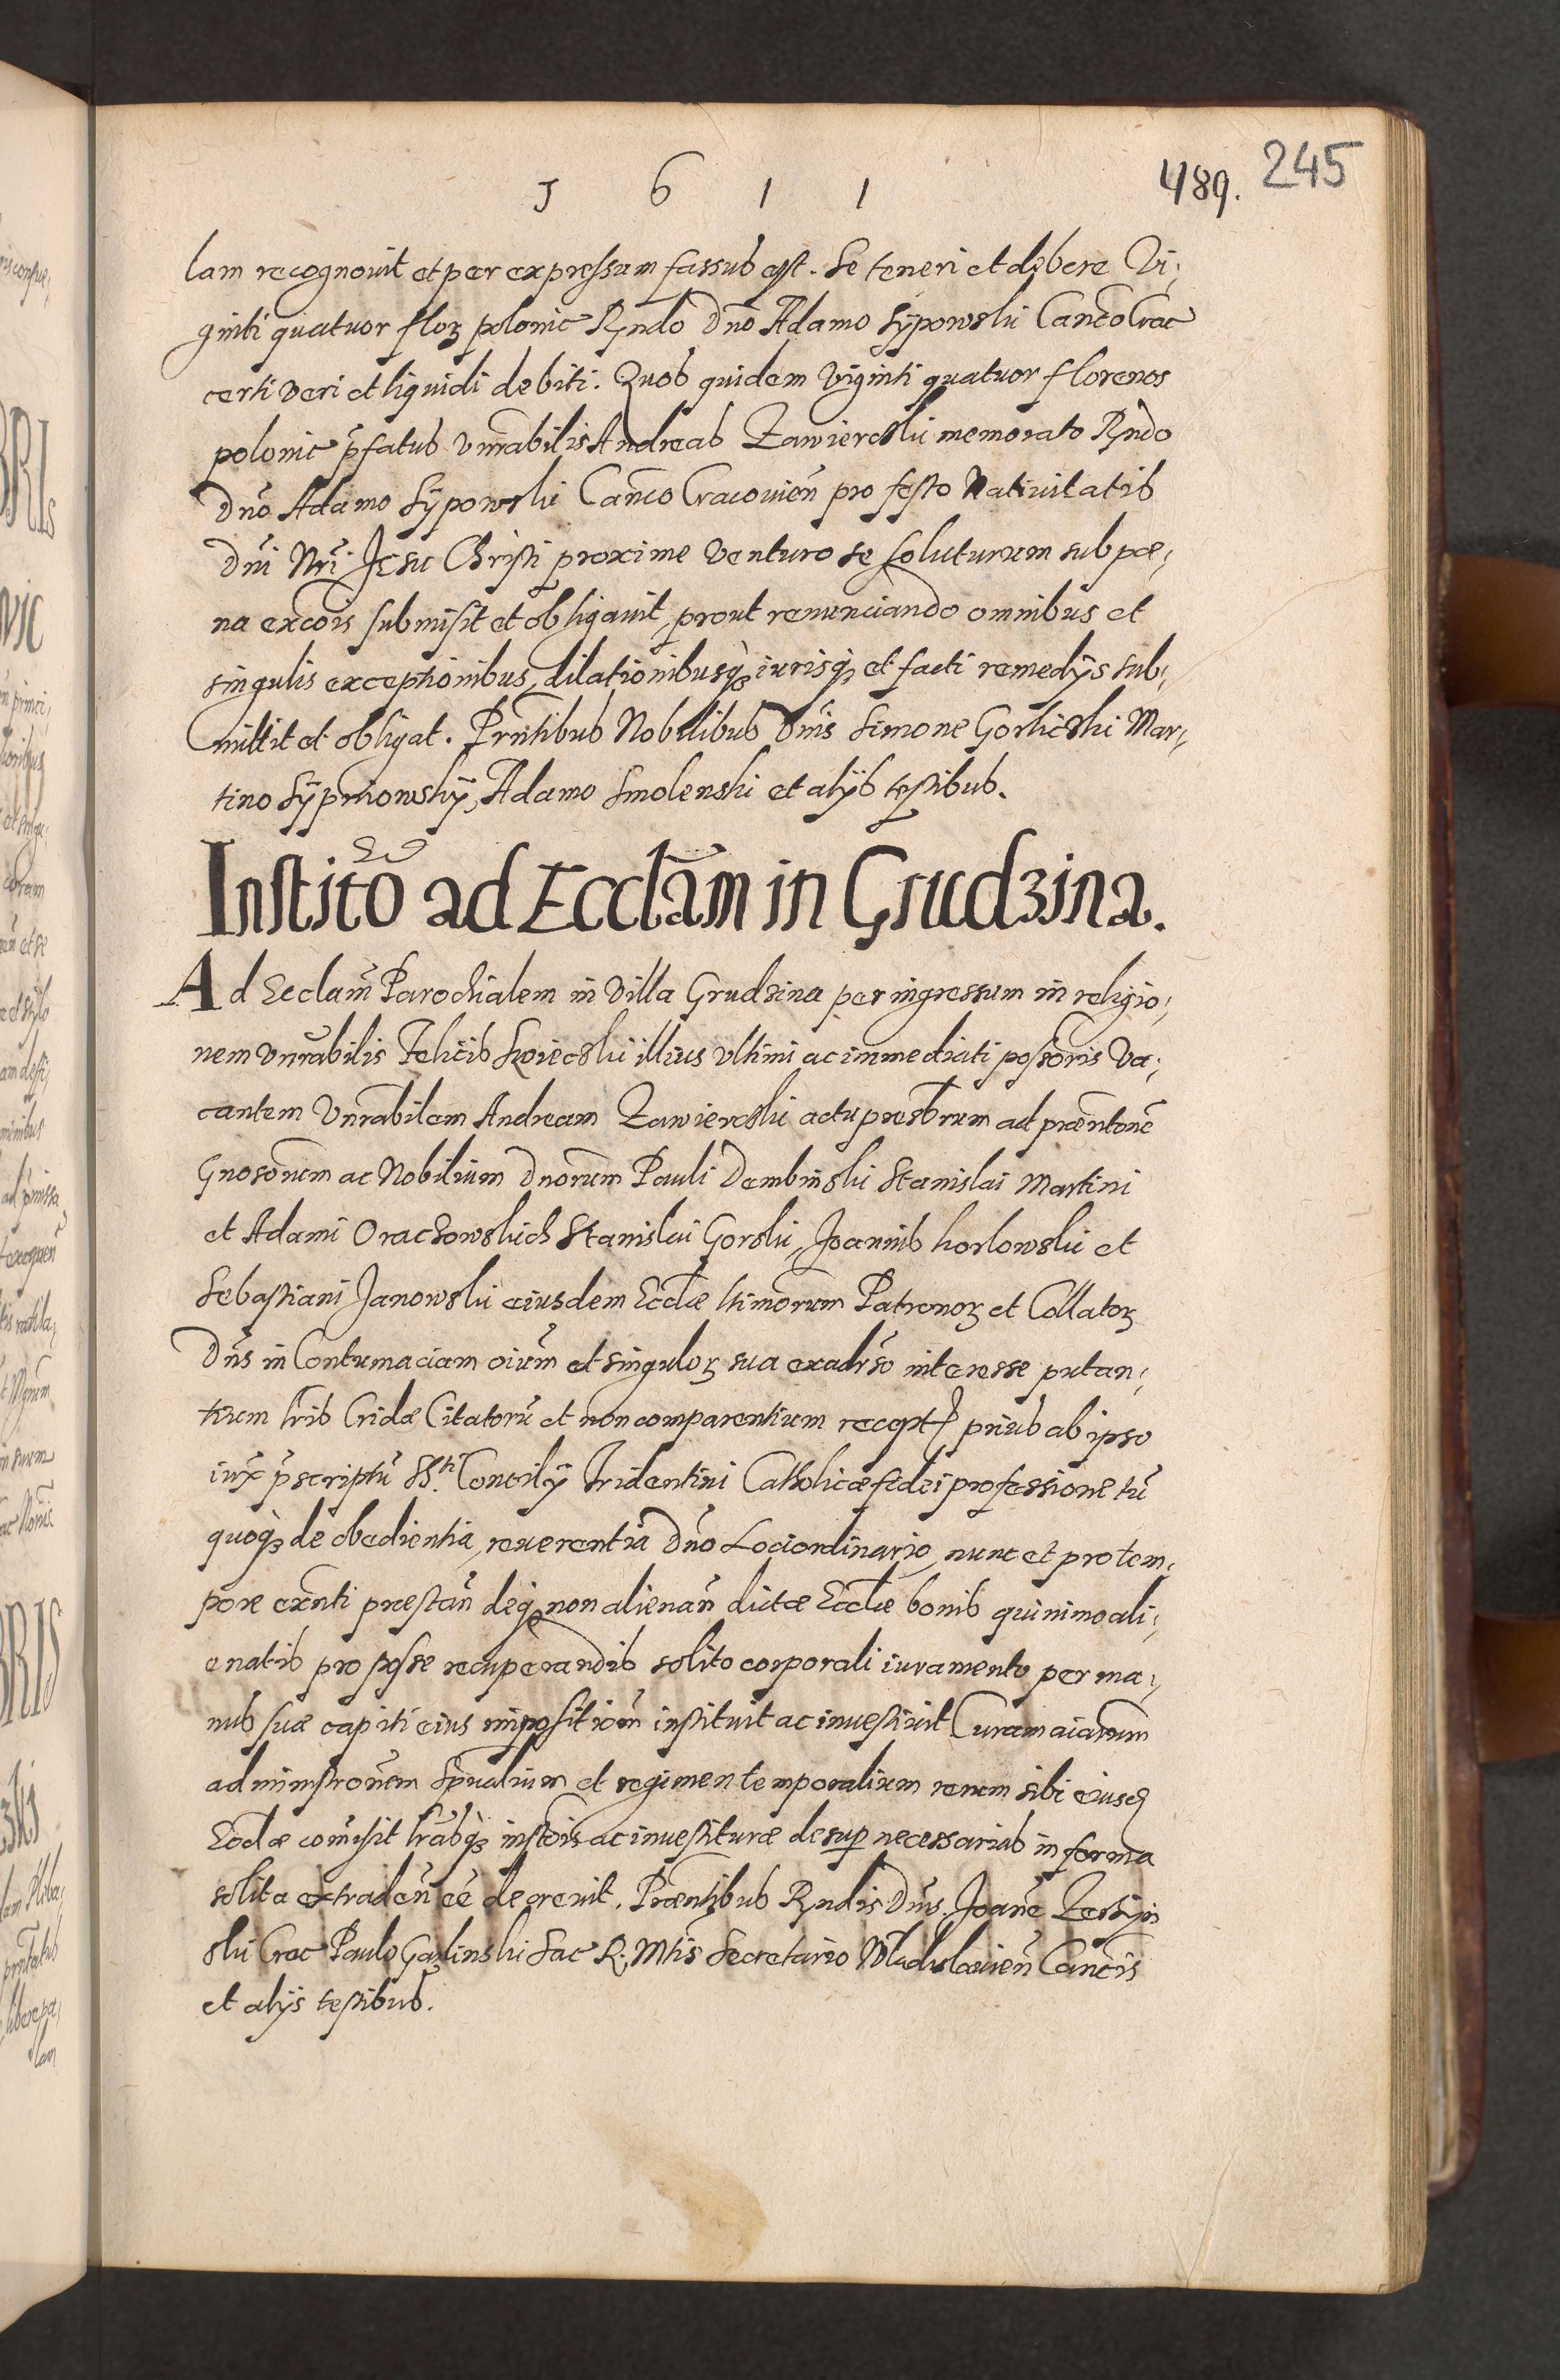 1 6 1 1
489. 245
lam recognouit et per expressum fassus est. Se teneri et debere Vi,
ginti quatuor floꝝ polonic Rndo Dno Adamo Sÿpowski Canco Crac
certi veri et liquidi debiti. Quos quidem viginti quatuor florenos
polonic pfatus vnrabilis Andreas Zawierski memorato Rndo
Dno Adamo Sÿpowski Canco Cracouien pro festo Natiuitatis
Dni Nri Jesu Christi proxime venturo se soluturum sub pœ,
na excois submisit et obligauit, prout renunciando omnibus et
singulis exceptionibus, dilationibusqȝ iurisqȝ et facti remedijs sub,
mittit et obligat. Prntibus Nobilibus Dnis Simone Gorliczki Mar,
tino Sÿpniowskÿ, Adamo Smolenski et alÿs testibus.
Institõ ad Ecclam in Grudzina.
Ad Ecclam Parochialem in villa Grudzina per ingressum in religio,
nem vnrabilis Felicis illius vltimi ac immediati possoris va,
cantem Vnrabilem Andream Zawierski actu presbrum ad præntone
Gnosorum ac Nobilium Dnorum Pauli Dembinski Stanislai Martini
et Adami Orachowskich Stanislai Gorski, Joannis korlowski et
Sebastiani Janowski eiusdem Ecclæ ltimorum Patronoꝝ et Collatoꝝ
Dns in Contumaciam oium et singuloꝝ sua exadrso interesse putan,
tium lris Cridæ Citatoru et non comparentium recepta prius ab ipso
iux pscriptu SSti Concilÿ Tridentini Catholicæ fidei professione tu
quoqȝ de obedientia, reuerentia Dno Loci ordinario, nunc et pro tem,
pore exnti prestan deqȝ non alienan dictæ Ecclæ bonis quinimo ali,
enatis pro posse recuperandis solito corporali iuramento per ma,
nus suæ capiti eius impositiom instituit ac inuestiuit Curam aiarum
administronem Spualium et regimen temporalium rerum sibi eiusd
Ecclæ comisit lrasqȝ instois ac inuestituræ desup necessarias in forma
solita extraden ee decreuit. Præntibus Rndis Dnis. Joane
ski Crac Paulo Garlinski Sac R. Mtis Secretario Wladislauien Cancis
et alijs testibus.